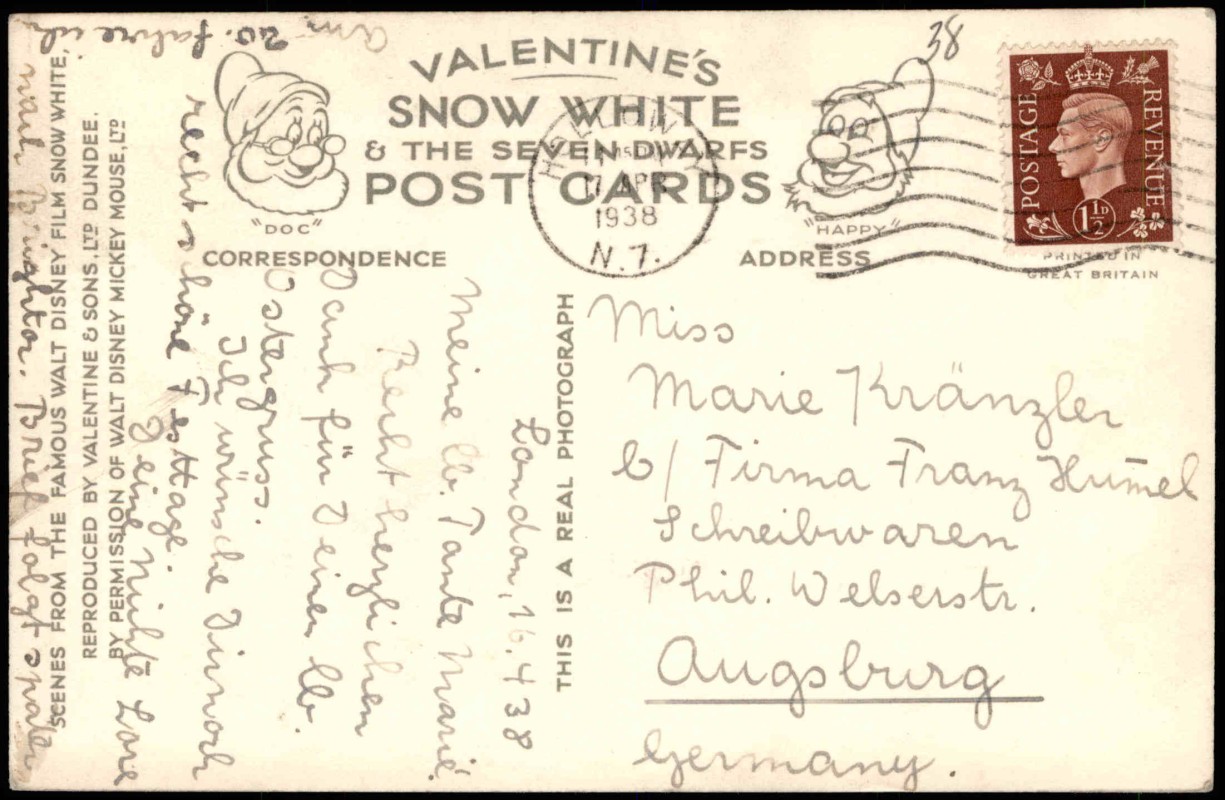 VALENTINE'S
SNOW WHITE
& THE SEVEN DWARFS
POST CARDS
"DOC"
"HAPPY"
CORRESPONDENCE
ADDRESS
PRINTED IN
GREAT BRITAIN
HOLLOWAY
17 APR
1938
N.7.
38
POSTAGE
REVENUE
1½D
SCENES FROM THE FAMOUS WALT DISNEY FILM SNOW WHITE,
REPRODUCED BY VALENTINE & SONS, LTD DUNDEE,
BY PERMISSION OF WALT DISNEY MICKEY MOUSE, LTD
THIS IS A REAL PHOTOGRAPH
London, 16.4 38
Meine lb. Tante Marie
Recht herzlichen
Dank für Deinen lb.
Ostergruss.
Ich wünsche Dir noch
recht schöne Festtage.
Deine Nichte Lore
Am 20. fahre ich
nach Brighton. Brief folgt später
Miss
Marie Kränzler
b/ Firma Franz Hum̄el
Schreibwaren
Phil. Welserstr.
Augsburg
Germany.